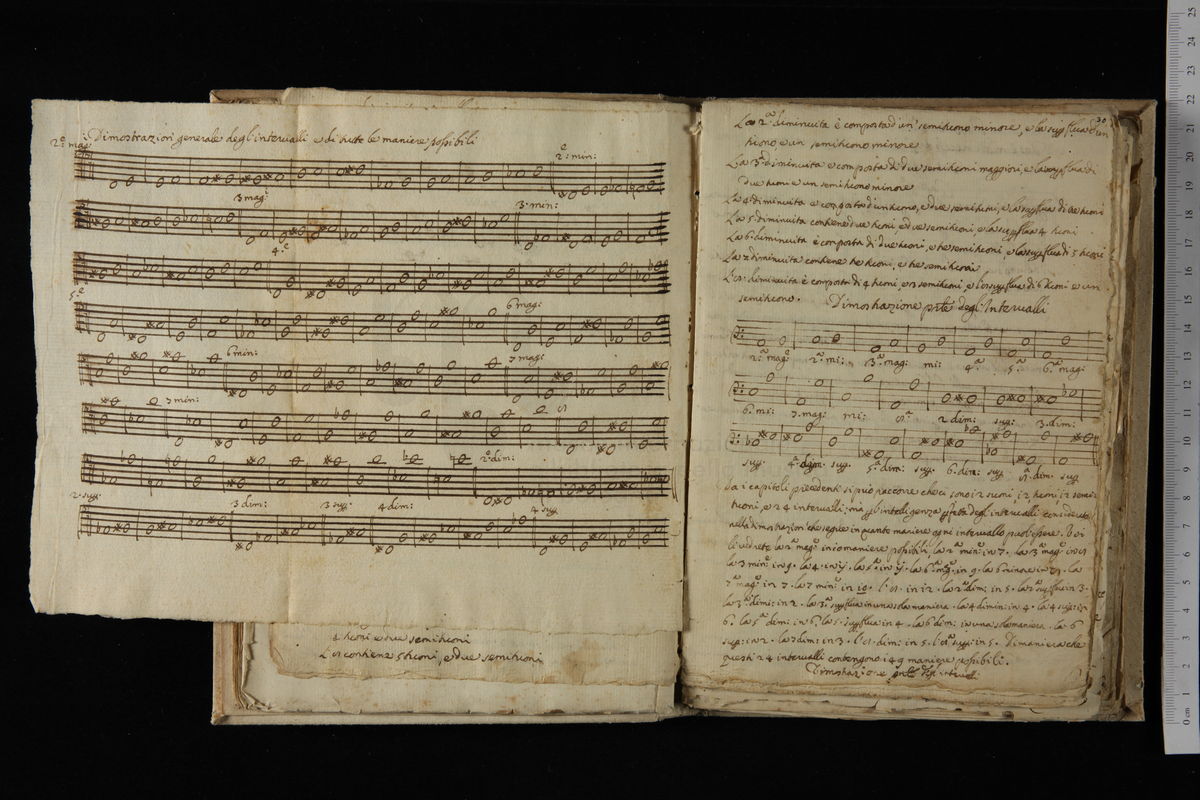 Dimostrazioni generale degl'intervalli e di tutte le maniere possibili
2.ª mag:
2.ª min:
3 mag:
3. min:
4.ª
5.ª
6 mag:
6 min:
7 mag:
7 min:
8
2.ª dim:
2.ª sup.
3 dim:
3 sup:
4 dim:
4 sup
4 tuoni e due semituoni
L'8 contiene 5 tuoni, e due semituoni
30
La 2.ª diminuita è composta d'un semituono minore, e la superflua d'un
tuono e un semituono minore
La 3.ª diminuita e composta di due semituoni maggiori, e la superflua di
due tuoni e un semituono minore
La 4 diminuita e composta d'un tuono, e due semituoni, e la superflua di tre tuoni
La 5 diminuita contiene due tuoni, e due semituoni, e la superflua 4 tuoni
La 6 diminuita è composta di due tuoni, e tre semituoni, e la superflua di 5 tuoni
La 7 diminuita contiene tre tuoni, e tre semituoni
L'8 diminuita è composta di 4 tuoni, e 3 semituoni, e l'8 superflua di 6 tuoni e un
semituono. Dimostrazione degl'Intervalli
2.ª mag.ª 2.ª mi: 3.ª mag: mi: 4.ª 5.ª 6.ª mag:
6. mi: 7. mag: mi: 8.ª 2 dim: sup: 3. dim:
sup: 4.ª dim: sup. 5.ª dim: sup: 6. dim: sup 8.ª dim: sup
Da i capitoli precedenti si può raccorre che ci sono 12 suoni, 12 tuoni 12 semi-
tuoni, e 24 intervalli, ma per l'intelligenza degl'intervalli considerate
nella dimostrazion che segue in quante maniere ogni intervallo puol essere. Ivi
li vedrete la 2.ª mag.ª in 10 maniere possibili, la 2.ª min.ª in 7. la 3.ª mag.ª in 8
la 3 min.ª in 9. la 4. in 11. la 5.ª in 11. la 6.ª mag.ª in 9. la 6 minore in 8. la
7.ª mag: in 7. la 7 min.ª in 10. l'8. in 12. la 2.ª dim: in 5. la 2.ª superflua in 3.
la 3.ª dimi: in 2. la 3.ª superflua in una sola maniera. la 4 dimin: in 4. la 4 sup: in
6. la 5.ª dim: in 6. la 5. superflua in 4. la 6 dim: in una sola maniera. la 6
sup: in 2. la 7 dim: in 3. l'8. dim: in 5. l'8.ª sup: in 5. Di maniera che
questi 24 intervalli contengono 149 maniere possibili.
Dimostrazione degl'intervalli